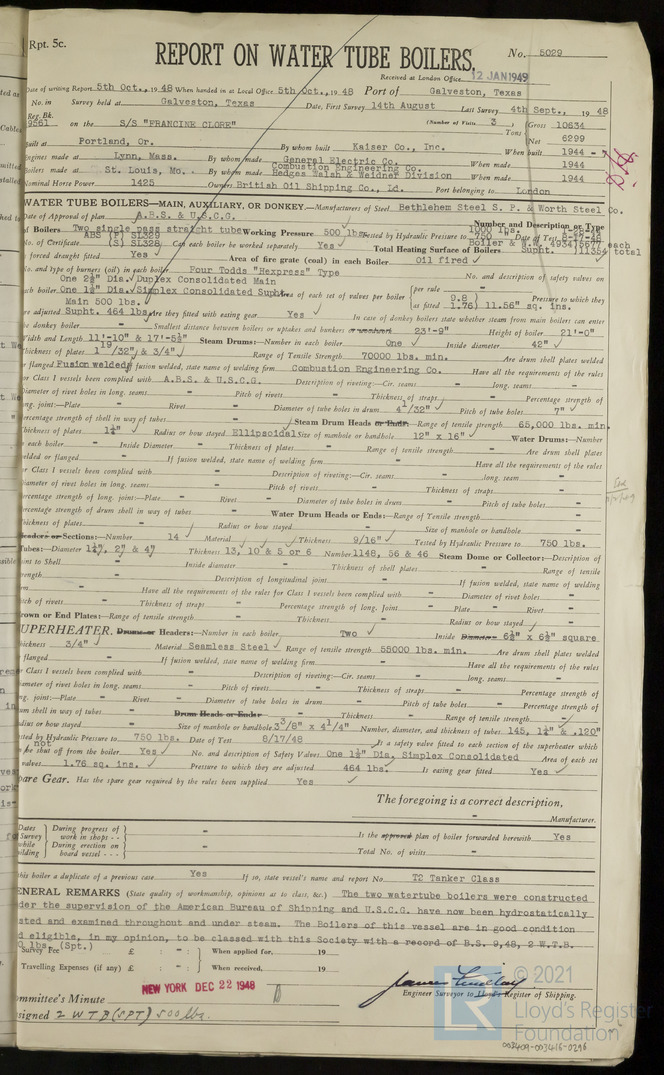 Rpt. 5c.
REPORT ON WATER TUBE BOILERS.
No. 5029
Received at London Office 12 JAN 1949
Date of writing Report 5th Oct., 19 48 When handed in at Local Office 5th Oct., 19 48 Port of Galveston, Texas
No. in Survey held at Galveston, Texas Date, First Survey 14th August Last Survey 4th Sept., 19 48
Reg. Bk.
9561 on the S/S "FRANCINE CLORE" (Number of Visits 3) Tons { Gross 10634
Net 6299
Built at Portland, Or. By whom built Kaiser Co., Inc. When built 1944
Engines made at Lynn, Mass. By whom made General Electric Co. When made 1944
Boilers made at St. Louis, Mo. By whom made Combustion Engineering Co. Hedges Walsh & Weidner Division When made 1944
Nominal Horse Power 1425 Owners British Oil Shipping Co., Ld. Port belonging to London
WATER TUBE BOILERS—MAIN, AUXILIARY, OR DONKEY.—Manufacturers of Steel Bethlehem Steel S. P. & Worth Steel Co.
Date of Approval of plan A.B.S. & U.S.C.G. Number and Description or Type
of Boilers Two single pass straight tube Working Pressure 500 lbs. Tested by Hydraulic Pressure to 750 Date of Test
No. of Certificate ABS (P) SL329 (S) SL328 Can each boiler be worked separately Yes Total Heating Surface of Boilers Boiler & W.W. 4934 Supht. each 11354 total
forced draught fitted Yes Area of fire grate (coal) in each Boiler Oil fired
No. and type of burners (oil) in each boiler Four Todds "Hexpress" Type No. and description of safety valves on
each boiler One 2½" Dia. Duplex Consolidated Main One 1½" Dia. Simplex Consolidated Supht. Area of each set of valves per boiler { per rule 9.8 as fitted 1.76) 11.56" sq. ins. Pressure to which they
are adjusted Main 500 lbs. Supht. 464 lbs. Are they fitted with easing gear Yes In case of donkey boilers state whether steam from main boilers can enter
the donkey boiler " Smallest distance between boilers or uptakes and bunkers or woodwork 23'-9" Height of boiler 21'-0"
Width and Length 11'-10" & 17'-5½" Steam Drums:—Number in each boiler One Inside diameter 42"
Thickness of plates 1 19/32" & 3/4" Range of Tensile Strength 70000 lbs. min. Are drum shell plates welded
or flanged Fusion welded If fusion welded, state name of welding firm Combustion Engineering Co. Have all the requirements of the rules
for Class I vessels been complied with A.B.S. & U.S.C.G. Description of riveting:—Cir. seams " long. seams "
Diameter of rivet holes in long. seams " Pitch of rivets " Thickness of straps " Percentage strength of
long. joint:—Plate " Rivet " Diameter of tube holes in drum 4 1/32" Pitch of tube holes 7"
Percentage strength of shell in way of tubes " Steam Drum Heads or Ends:—Range of tensile strength 65,000 lbs. min.
Thickness of plates 1¼" Radius or how stayed Ellipsoidal Size of manhole or handhole 12" x 16" Water Drums:—Number
in each boiler " Inside Diameter " Thickness of plates " Range of tensile strength " Are drum shell plates
welded or flanged " If fusion welded, state name of welding firm " Have all the requirements of the rules
for Class I vessels been complied with " Description of riveting:—Cir. seams " long. seam "
Diameter of rivet holes in long. seams " Pitch of rivets " Thickness of straps "
Percentage strength of long. joint:—Plate " Rivet " Diameter of tube holes in drum " Pitch of tube holes "
Percentage strength of drum shell in way of tubes " Water Drum Heads or Ends:—Range of Tensile strength "
Thickness of plates " Radius or how stayed " Size of manhole or handhole "
Headers or Sections:—Number 14 Material " Thickness 9/16" Tested by Hydraulic Pressure to 750 lbs.
Tubes:—Diameter 1¼", 2" & 4" Thickness 13, 10 & 5 or 6 Number 1148, 56 & 46 Steam Dome or Collector:—Description of
Joint to Shell " Inside diameter " Thickness of shell plates " Range of tensile
strength " Description of longitudinal joint " If fusion welded, state name of welding
firm " Have all the requirements of the rules for Class I vessels been complied with " Diameter of rivet holes "
Pitch of rivets " Thickness of straps " Percentage strength of long. Joint " Plate " Rivet "
Crown or End Plates:—Range of tensile strength " Thickness " Radius or how stayed "
SUPERHEATER. Drums or Headers:—Number in each boiler Two Inside Diameter 6½" x 6½" square
Thickness 3/4" Material Seamless Steel Range of tensile strength 55000 lbs. min. Are drum shell plates welded
or flanged " If fusion welded, state name of welding firm " Have all the requirements of the rules
for Class I vessels been complied with " Description of riveting:—Cir. seams " long. seams "
Diameter of rivet holes in long. seams " Pitch of rivets " Thickness of straps " Percentage strength of
long. joint:—Plate " Rivet " Diameter of tube holes in drum " Pitch of tube holes " Percentage strength of
drum shell in way of tubes " Drum Heads or Ends " Thickness " Range of tensile strength "
Radius or how stayed " Size of manhole or handhole 3 3/8" x 4 1/4" Number, diameter, and thickness of tubes 145, 1¼" & .120"
Tested by Hydraulic Pressure to 750 lbs. Date of Test 8/17/48 Is a safety valve fitted to each section of the superheater which
can not be shut off from the boiler Yes No. and description of Safety Valves One 1½" Dia. Simplex Consolidated Area of each set
of valves 1.76 sq. ins. Pressure to which they are adjusted 464 lbs. Is easing gear fitted Yes
Spare Gear. Has the spare gear required by the rules been supplied Yes
The foregoing is a correct description,
Manufacturer.
Dates of Survey while building { During progress of work in shops - - " During erection on board vessel - - - "
Is the approved plan of boiler forwarded herewith Yes
Total No. of visits "
Is this boiler a duplicate of a previous case Yes If so, state vessel's name and report No. T2 Tanker Class
GENERAL REMARKS (State quality of workmanship, opinions as to class, &c.) The two watertube boilers were constructed
under the supervision of the American Bureau of Shipping and U.S.C.G. have now been hydrostatically
tested and examined throughout and under steam. The Boilers of this vessel are in good condition
and eligible, in my opinion, to be classed with this Society with a record of B.S. 9,48, 2 W.T.B.
500 lbs. (Spt.)
Survey Fee £ : : When applied for, 19
Travelling Expenses (if any) £ : : When received, 19
James Findlay
Engineer Surveyor to Lloyd's Register of Shipping.
Committee's Minute NEW YORK DEC 22 1948
Assigned 2 W T B (SPT) 500 lbs.
© 2021
LR
Lloyd's Register
Foundation
003409-003416-0296